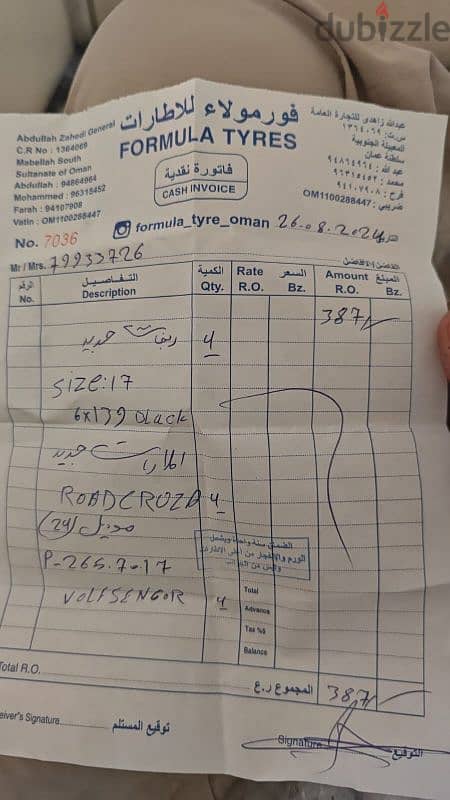 dubizzle
Abdullah Zahedi General
C.R No : 1364069
Mabellah South
Sultanate of Oman
Abdullah : 94864964
Mohammed : 96315452
Farah : 94107908
Vatin : OM1100288447
فورمولاء للاطارات
FORMULA TYRES
فاتورة نقدية
CASH INVOICE
عبدالله زاهدي للتجارة العامة
س.ت: ١٣٦٤٠٦٩
المعبيلة الجنوبية
سلطنة عمان
عبد الله : ٩٤٨٦٤٩٦٤
محمد : ٩٦٣١٥٤٥٢
فرح : ٩٤١٠٧٩٠٨
ضريبي : OM1100288447
No. 7036
formula_tyre_oman
26.08.2024
Mr / Mrs. 79933726
الرقم التفاصيل الكمية Rate السعر Amount المبلغ
No. Description Qty. R.O. Bz. R.O. Bz.
387
جديد 4
Size: 17
6x139 black
جديد
ROADCROZA 4
موديل (24)
P-265.70.17
VOLFSENGOR 4
Total
Advance
Tax %5
Balance
Total R.O. المجموع ر.ع 387
eiver's Signature توقيع المستلم
Signature التوقيع